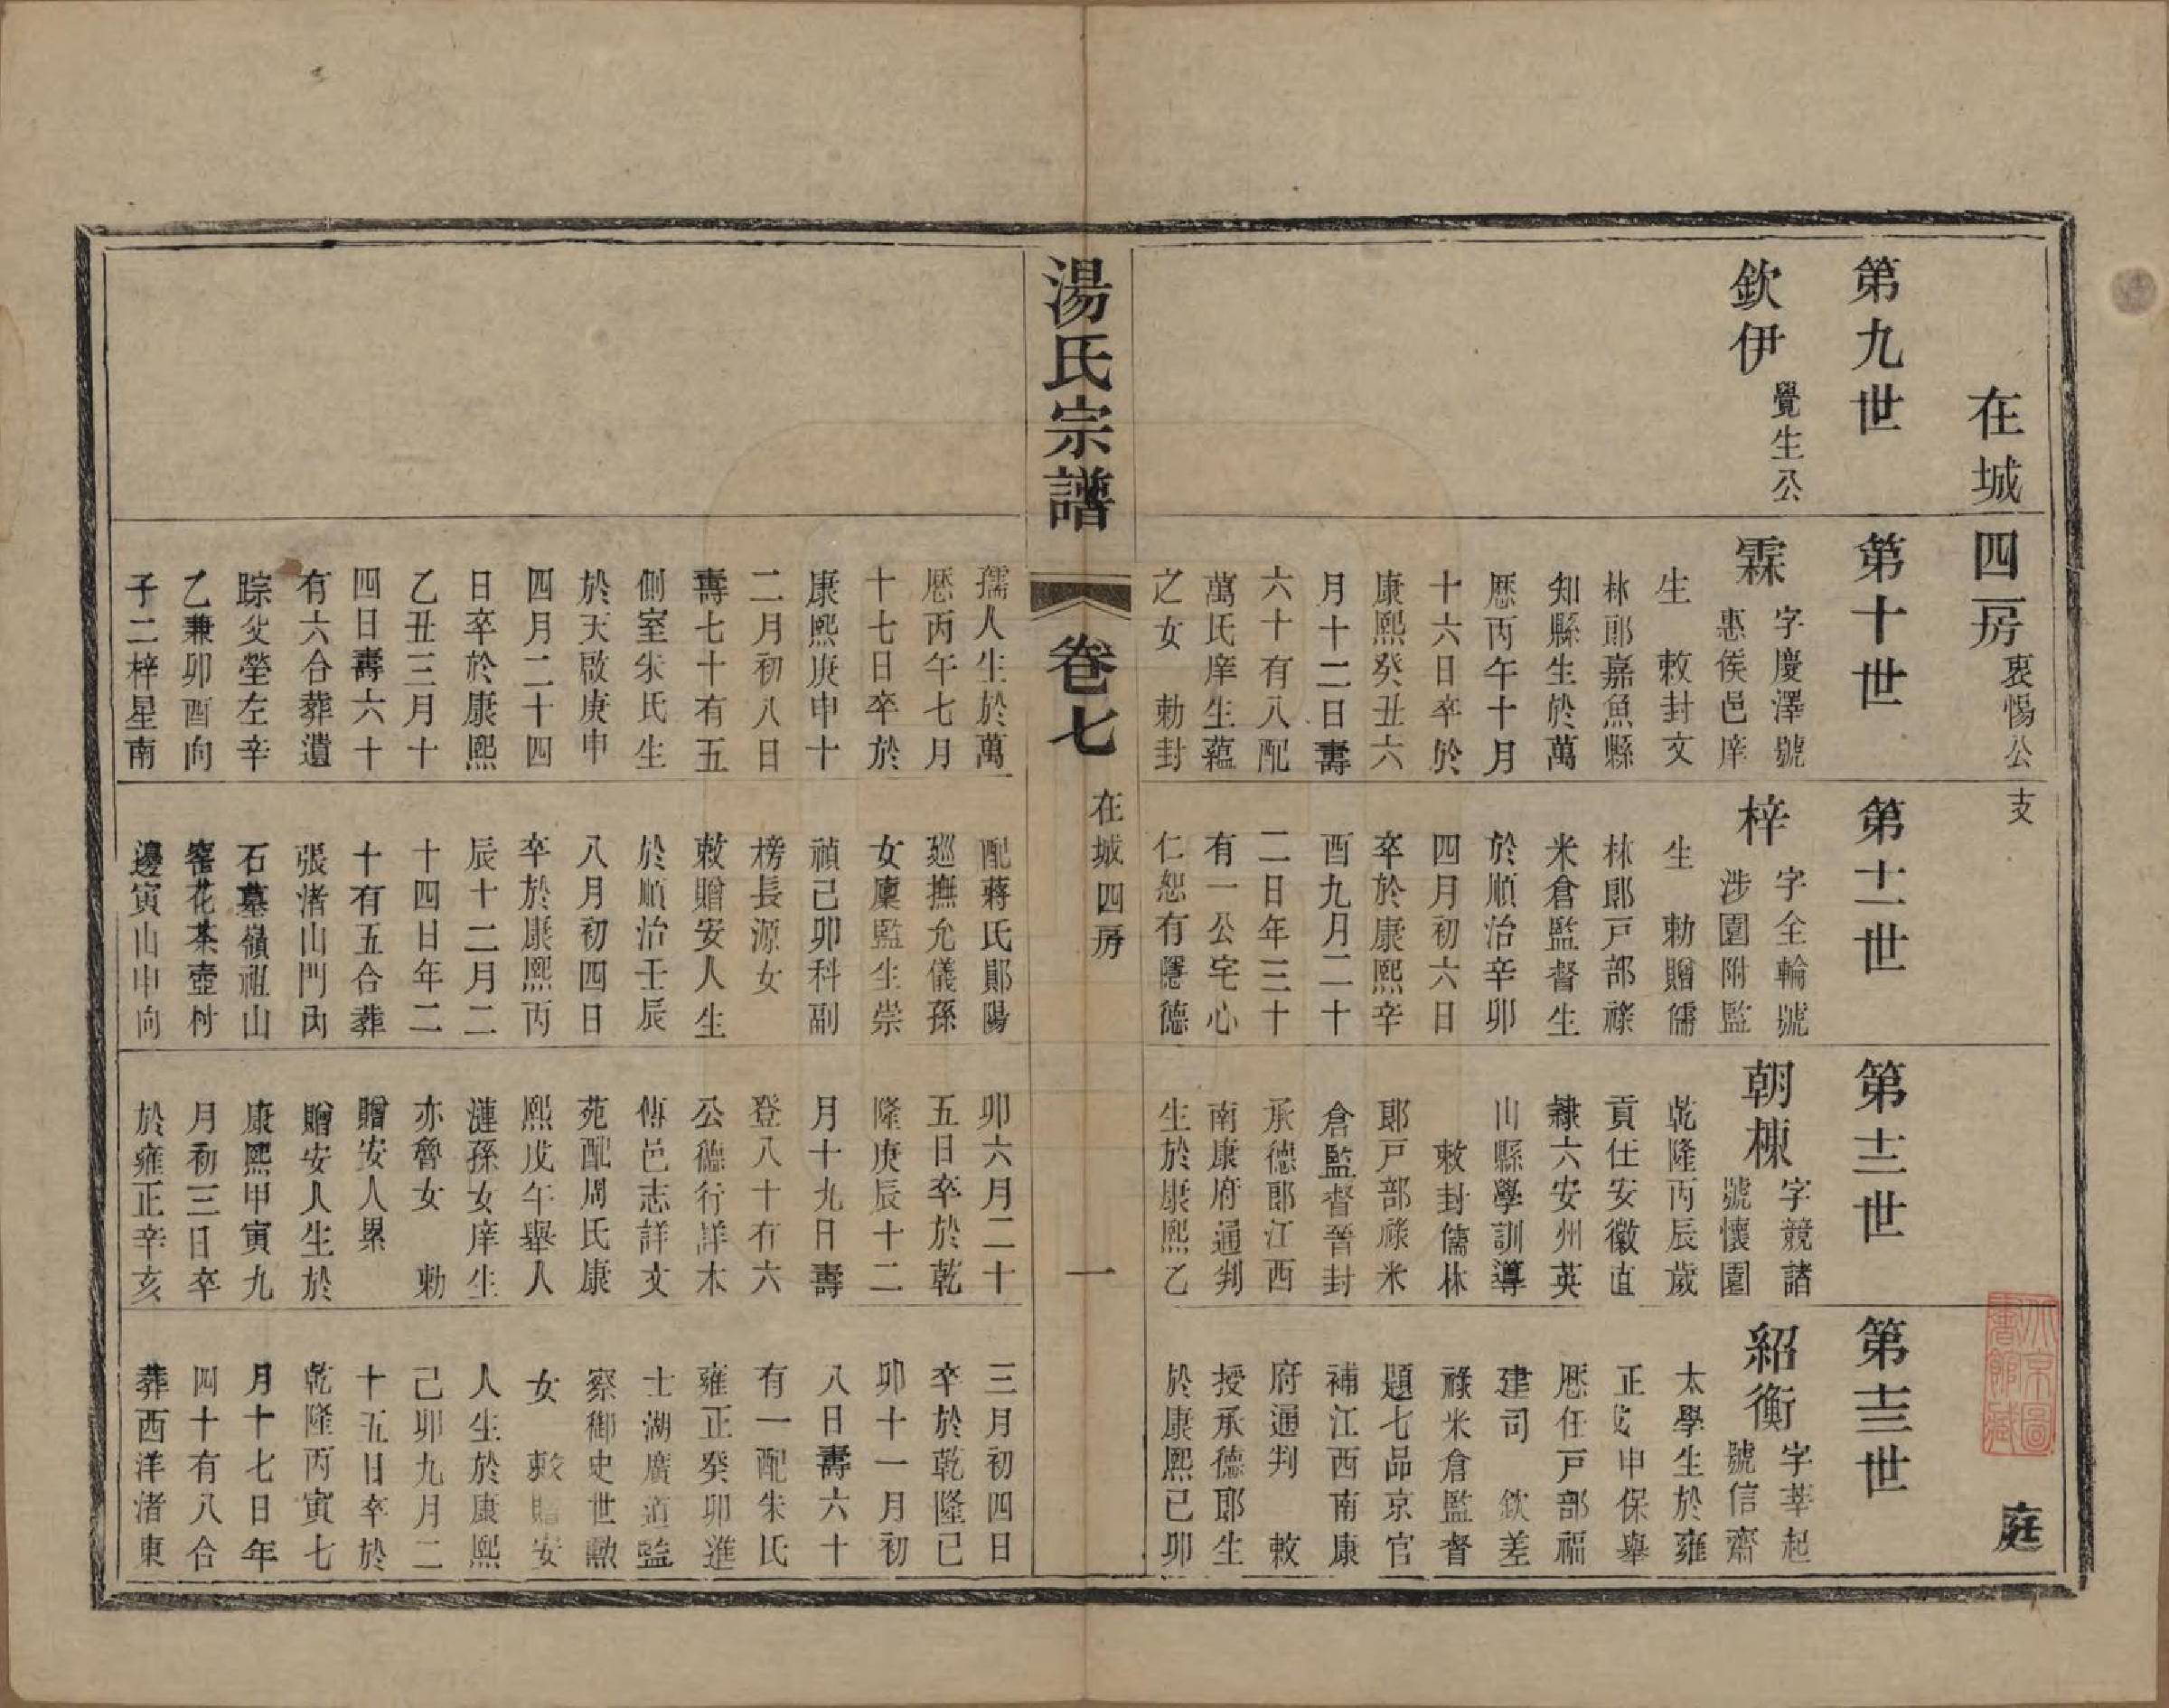 在城四房裏惕公支 庭
第九世
欽伊
覺生公
第十世
霖
字慶澤號
惠侯邑庠
生 敕封文
林郎嘉魚縣
知縣生於萬
厯丙午十月
十六日卒於
康熙癸丑六
月十二日壽
六十有八配
萬氏庠生蘊
之女 勅封
孺人生於萬
厯丙午七月
十七日卒於
康熙庚申十
二月初八日
壽七十有五
側室朱氏生
於天啟庚申
四月二十四
日卒於康熙
乙丑三月十
四日壽六十
有六合葬遺
踪父塋左辛
乙兼卯酉向
子二梓星南
第十一世
梓
字全輪號
涉園附監
生 勅贈儒
林郎戸部祿
米倉監督生
於順治辛卯
四月初六日
卒於康熙辛
酉九月二十
二日年三十
有一公宅心
仁恕有隱德
配蔣氏鄖陽
廵撫允儀孫
女廩監生崇
禎己卯科副
榜長源女
敕贈安人生
於順治壬辰
八月初四日
卒於康熙丙
辰十二月二
十四日年二
十有五合葬
張渚山門內
石墓嶺祖山
窰花茶壺村
邊寅山申向
第十二世
朝棟
字競諸
號懷園
乾隆丙辰歲
貢仕安徽直
隸六安州英
山縣學訓導
敕封儒林
郎戸部祿米
倉監督晉封
承德郎江西
南康府通判
生於康熙乙
卯六月二十
五日卒於乾
隆庚辰十二
月十九日壽
登八十有六
公德行詳本
傳邑志詳文
苑配周氏康
熙戊午舉人
漣孫女庠生
亦魯女 勅
贈安人累
贈安人生於
康熙甲寅九
月初三日卒
於雍正辛亥
第十三世
紹衡
字莘起
號信齋
太學生於雍
正戊申保舉
厯任戸部福
建司 欽差
祿米倉監督
題七品京官
補江西南康
府通判 敕
授承德郎生
於康熙己卯
三月初四日
卒於乾隆己
卯十一月初
八日壽六十
有一配朱氏
雍正癸卯進
士湖廣道監
察御史世勲
女 敕贈安
人生於康熙
己卯九月二
十五日卒於
乾隆丙寅七
月十七日年
四十有八合
葬西洋渚東
湯氏宗譜
卷七
在城四房
一
北京圖書館藏